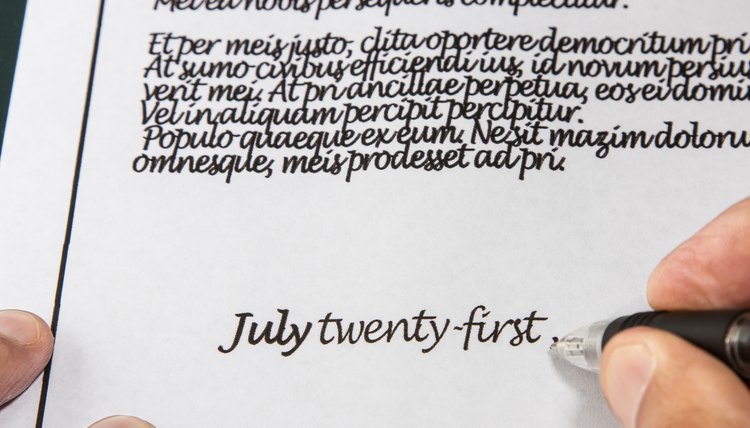 Mei ea nobis persequeris complectitur.
Et per meis justo, clita oportere democritum pri
At sumo civibus efficiendi ius, id novum persiu
verit mei. At pri ancillae perpetua, eos ei domin
Vel in aliquam percipit percipitur.
Populo quaeque ex eum. Ne sit mazim doloru
omnesque, meis prodesset ad pri.
July twenty-first,